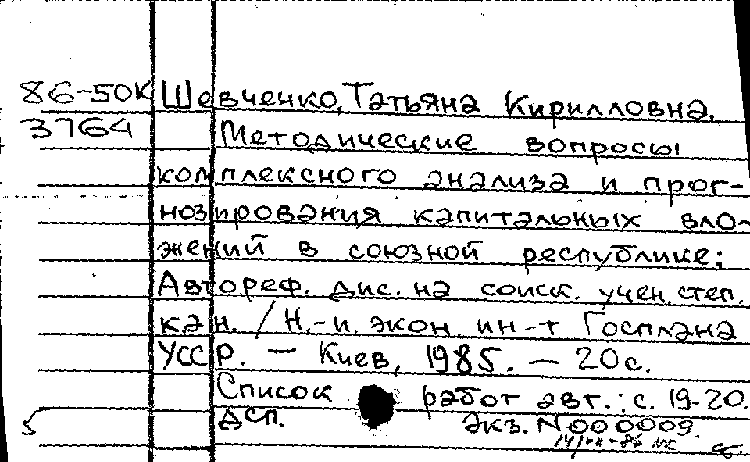 86-50К Шевченко, Татьяна Кирилловна.
3764 Методические вопросы
комплексного анализа и прог-
нозирования капитальных вло-
жений в союзной республике:
Автореф. дис. на соиск. учен. степ.
кан. / Н.-и. экон. ин-т Госплана
УССР. — Киев, 1985. — 20 с.
Список работ авт.: с. 19-20.
5 ДСП. Экз. N000009.